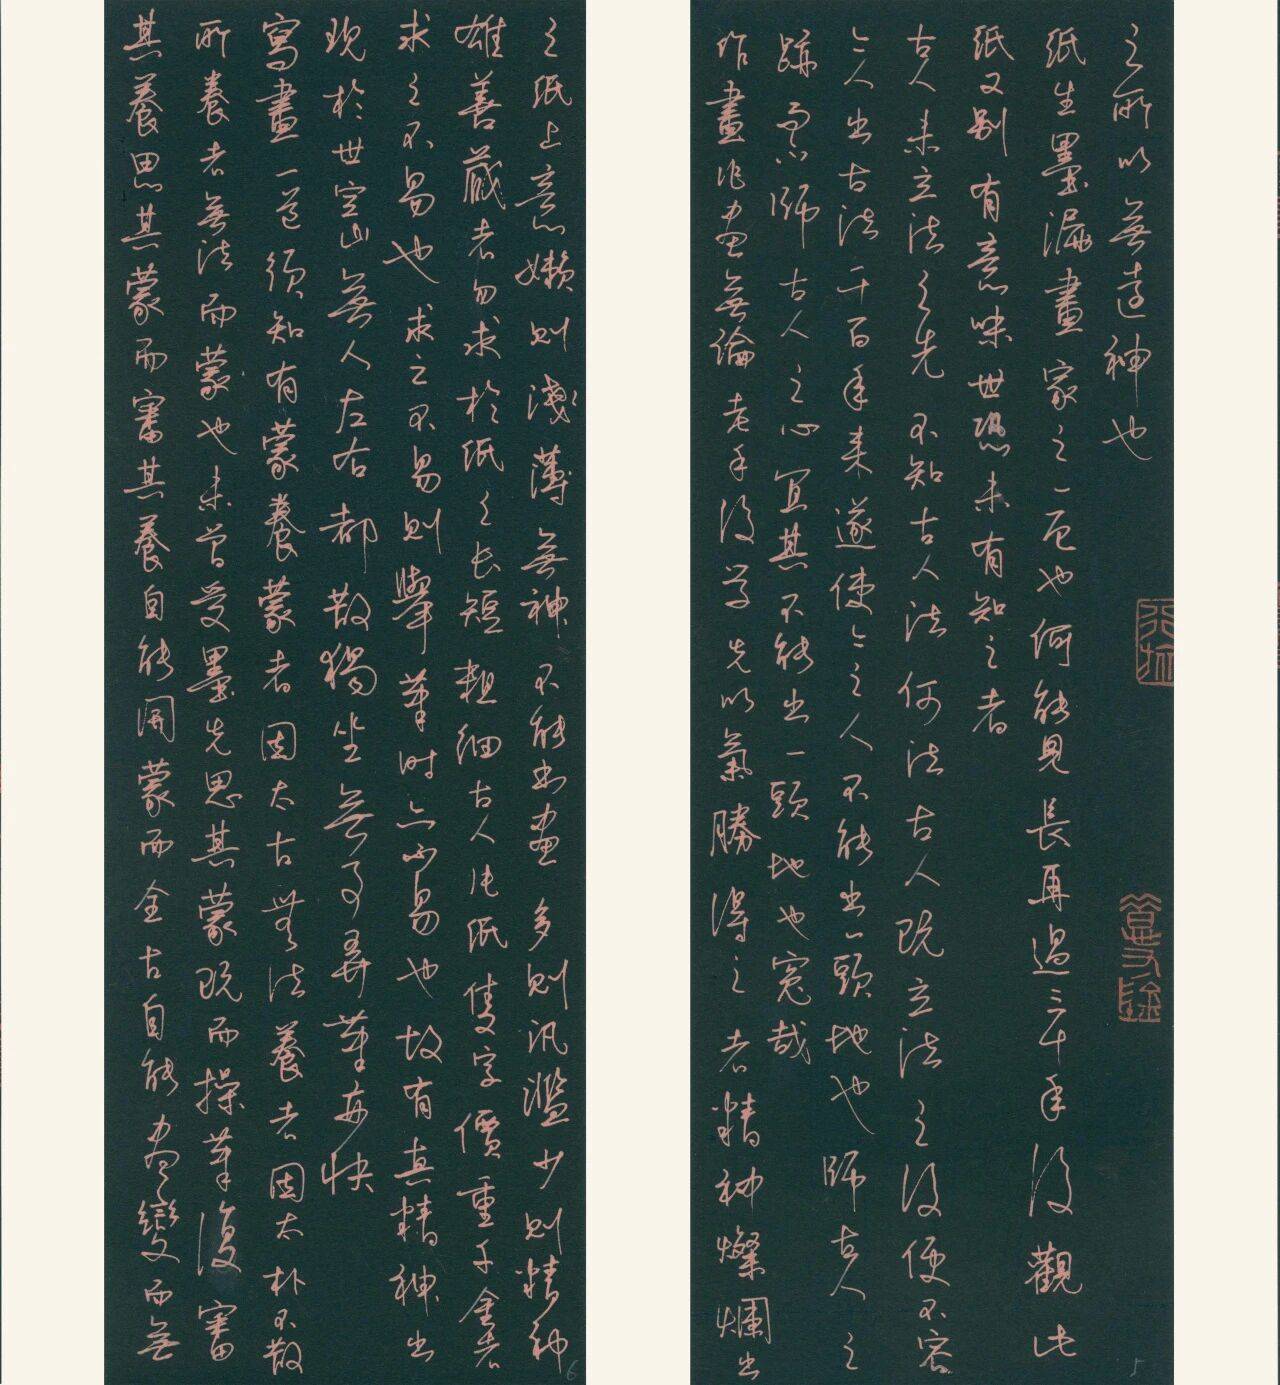 之所以無遠神也
紙生墨漏畫家之一厄也何能見長再過三十年後觀此
紙又別有意味世恐未有知之者
古人未立法之先不知古人法何法古人既立法之後便不容
今人出古法千百年來遂使今之人不能出一頭地也師古人之
跡而不師古人之心宜其不能出一頭地也冤哉
作畫作畫無論老手後學先以氣勝得之者精神燦爛出
之紙上意懶則淺薄無神不能書畫多則汎濫少則精神
雄善藏者勿求於紙之長短粗細古人片紙隻字價重千金者
求之不易也求之不易則舉筆時亦不易也故有真精神出
現於世空山無人左右都散獨坐無事弄筆每快
寫畫一道須知有蒙養蒙者因太古無法養者因太朴不散
所養者無法而蒙也未曾受墨先思其蒙既而操筆復審
其養思其蒙而審其養自能開蒙而全古自能盡變而無
5
6